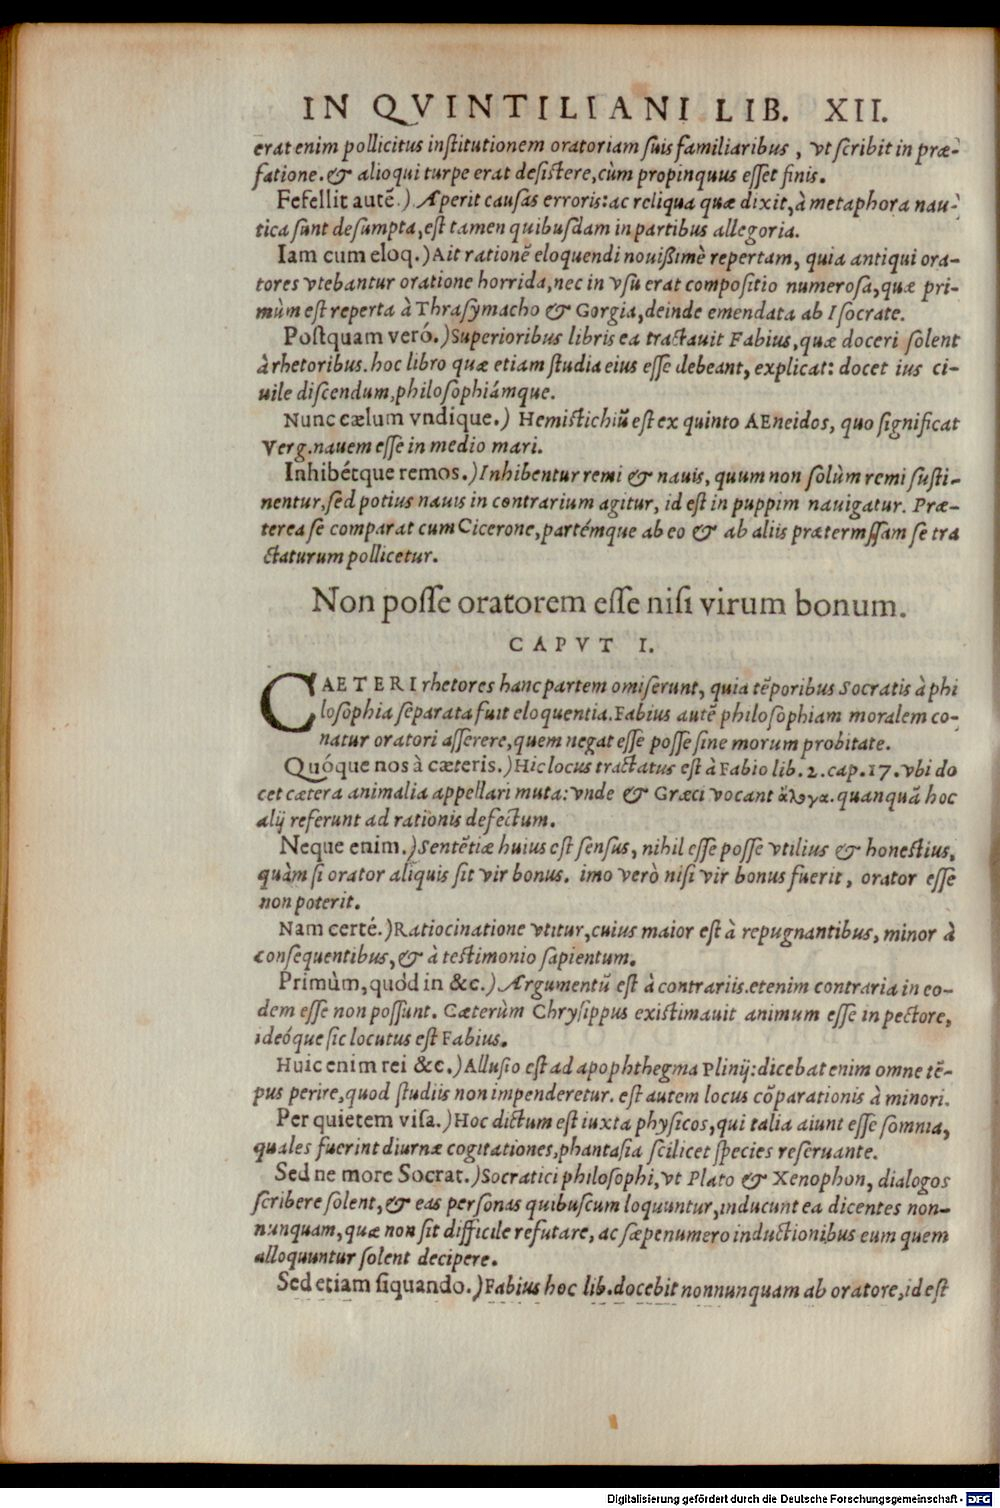 IN QVINTILIANI LIB. XII.
erat enim pollicitus institutionem oratoriam suis familiaribus, vt scribit in præ-
fatione. & alioqui turpe erat desistere, cùm propinquus esset finis.
Fefellit autẽ.) Aperit causas erroris: ac reliqua quæ dixit, à metaphora nau-
tica sunt desumpta, est tamen quibusdam in partibus allegoria.
Iam cum eloq.) Ait rationẽ eloquendi nouißimè repertam, quia antiqui ora-
tores vtebantur oratione horrida, nec in vsu erat compositio numerosa, quæ pri-
mùm est reperta à Thrasymacho & Gorgia, deinde emendata ab Isocrate.
Postquam veró.) Superioribus libris ea tractauit Fabius, quæ doceri solent
à rhetoribus. hoc libro quæ etiam studia eius esse debeant, explicat: docet ius ci-
uile discendum, philosophiámque.
Nunc cælum vndique.) Hemistichiũ est ex quinto AEneidos, quo significat
Verg. nauem esse in medio mari.
Inhibétque remos.) Inhibentur remi & nauis, quum non solùm remi susti-
nentur, sed potius nauis in contrarium agitur, id est in puppim nauigatur. Præ-
terea se comparat cum Cicerone, partémque ab eo & ab aliis prætermssam se tra
ctaturum pollicetur.
Non posse oratorem esse nisi virum bonum.
CAPVT I.
CAETERI rhetores hanc partem omiserunt, quia tẽporibus Socratis à phi
losophia separata fuit eloquentia. Fabius autẽ philosophiam moralem co-
natur oratori asserere, quem negat esse posse sine morum probitate.
Quóque nos à cæteris.) Hic locus tractatus est à Fabio lib. 2. cap. 17. vbi do
cet cætera animalia appellari muta: vnde & Græci vocant ἄλογα. quanquã hoc
alij referunt ad rationis defectum.
Neque enim.) Sentẽtiæ huius est sensus, nihil esse posse vtilius & honestius,
quàm si orator aliquis sit vir bonus. imo verò nisi vir bonus fuerit, orator esse
non poterit.
Nam certé.) Ratiocinatione vtitur, cuius maior est à repugnantibus, minor à
consequentibus, & à testimonio sapientum.
Primùm, quòd in &c.) Argumentũ est à contrariis. etenim contraria in eo-
dem esse non possunt. Cæterùm Chrysippus existimauit animum esse in pectore,
ideóque sic locutus est Fabius.
Huic enim rei &c.) Allusio est ad apophthegma Plinij: dicebat enim omne tẽ-
pus perire, quod studiis non impenderetur. est autem locus cõparationis à minori.
Per quietem visa.) Hoc dictum est iuxta physicos, qui talia aiunt esse somnia,
quales fuerint diurnæ cogitationes, phantasia scilicet species reseruante.
Sed ne more Socrat.) Socratici philosophi, vt Plato & Xenophon, dialogos
scribere solent, & eas personas quibuscum loquuntur, inducunt ea dicentes non-
nunquam, quæ non sit difficile refutare, ac sæpenumero inductionibus eum quem
alloquuntur solent decipere.
Sed etiam siquando.) Fabius hoc lib. docebit nonnunquam ab oratore, id est
Digitalisierung gefördert durch die Deutsche Forschungsgemeinschaft - DFG